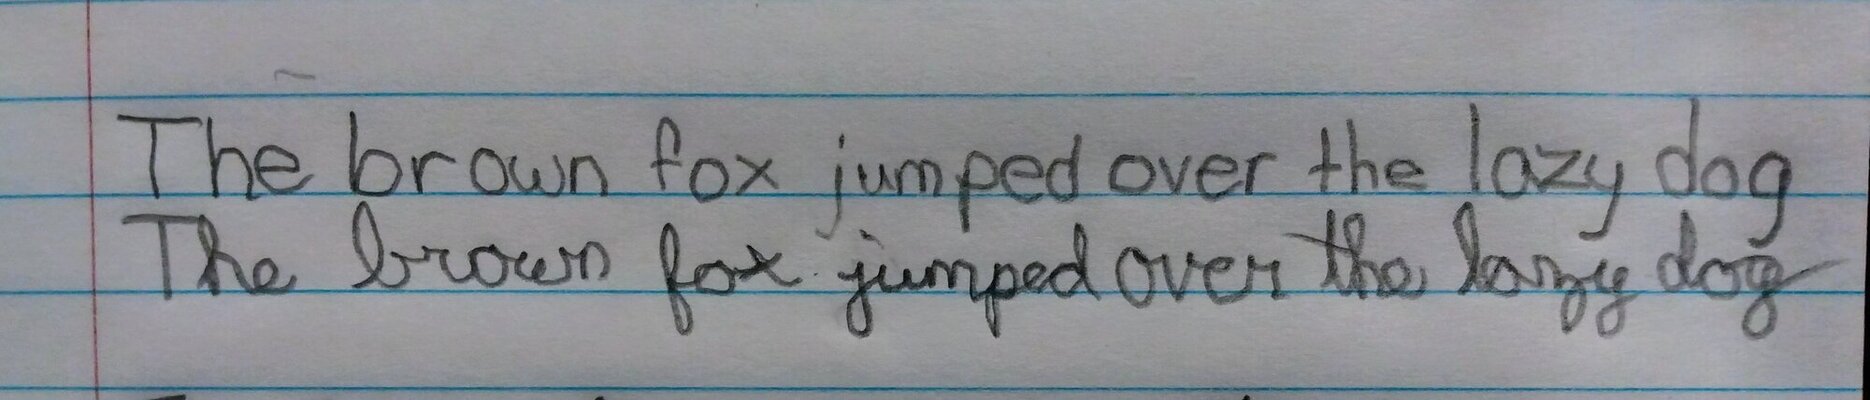 The brown fox jumped over the lazy dog
The brown fox jumped over the lazy dog